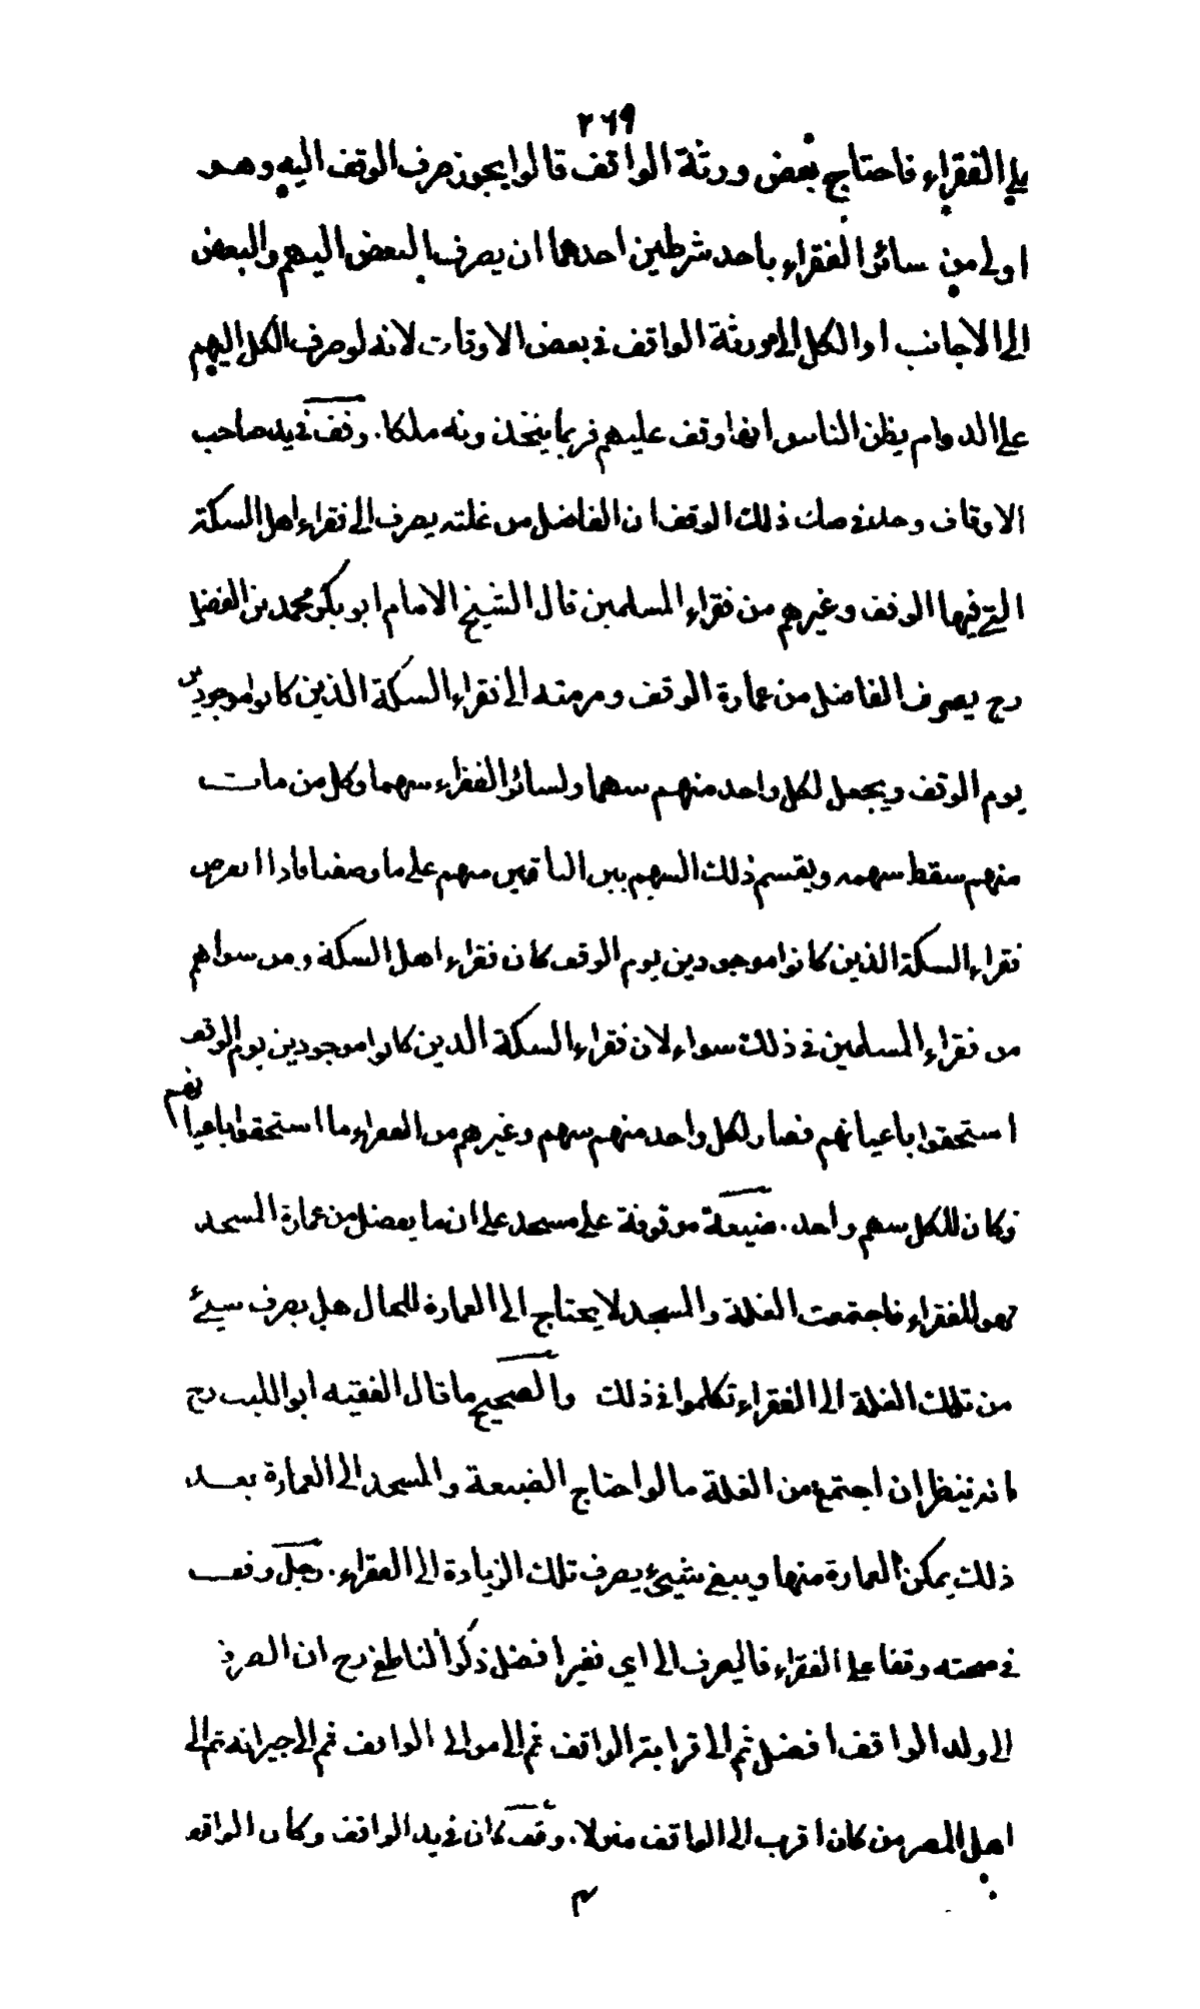 ٢٦٩
على الفقراء فاحتاج بعض ورثة الواقف قالوا يجوز صرف الوقف اليه وهو
اولى من سائر الفقراء باحد شرطين احدهما ان يصرف البعض اليهم والبعض
الى الاجانب او الكل الى ورثة الواقف في بعض الاوقات لانه لو صرف الكل اليهم
على الدوام يظن الناس انها وقف عليهم فربما يتخذونه ملكا . وقف في يد صاحب
الاوقاف وجد في صك ذلك الوقف ان الفاضل من غلته يصرف الى فقراء اهل السكة
التي فيها الوقف وغيرهم من فقراء المسلمين قال الشيخ الامام ابو بكر محمد بن الفضل
رح يصرف الفاضل من عمارة الوقف ومرمته الى فقراء السكة الذين كانوا موجودين
يوم الوقف ويجعل لكل واحد منهم سهما ولسائر الفقراء سهما وكل من مات
منهم سقط سهمه ويقسم ذلك السهم بين الباقين منهم على ما وصفنا فاذا انقرض
فقراء السكة الذين كانوا موجودين يوم الوقف كان فقراء اهل السكة ومن سواهم
من فقراء المسلمين في ذلك سواء لان فقراء السكة الذين كانوا موجودين يوم الوقف
استحقوا باعيانهم فصار لكل واحد منهم سهم وغيرهم من الفقراء ما استحقوا باعيانهم
فكان للكل سهم واحد . ضيعة موقوفة على مسجد على ان ما يفضل من عمارة المسجد
فهو للفقراء فاجتمعت الغلة والمسجد لا يحتاج الى العمارة للحال هل يصرف شيئ
من تلك الغلة الى الفقراء تكلموا في ذلك والصحيح ما قال الفقيه ابو الليث رح
انه ينظر ان اجتمع من الغلة ما لو احتاج الضيعة والمسجد الى العمارة بعد
ذلك يمكن العمارة منها ويبقى شيئ يصرف تلك الزيادة الى الفقراء . رجل وقف
في صحته وقفا على الفقراء فاليصرف الى اي فقير افضل ذكر الناطفي رح ان الصرف
الى ولد الواقف افضل ثم الى قرابة الواقف ثم الى موالى الواقف ثم الى جيرانه ثم الى
اهل المصر من كان اقرب الى الواقف منزلا . وقف كان في يد الواقف وكان الواقف